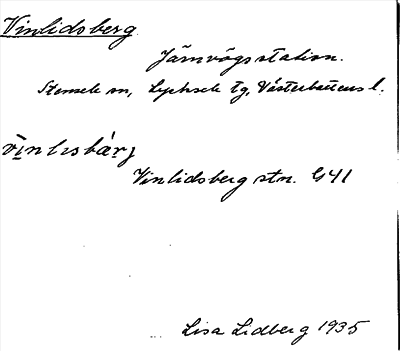 Vinlidsberg
Järnvägsstation.
Stensele sn, Lycksele tg, Västerbottens l.
vìnlısbàrj
Vinlidsberg stn. G41
Lisa Lidberg 1935